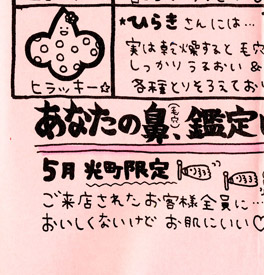 ★ひらきさんには…
実は乾燥すると毛穴
しっかりうるおい&
各種とりそろえてお
ヒラッキー☆
あなたの鼻(毛穴)、鑑定し
5月 光町限定
ご来店されたお客様全員に…
おいしくないけど お肌にいい♡